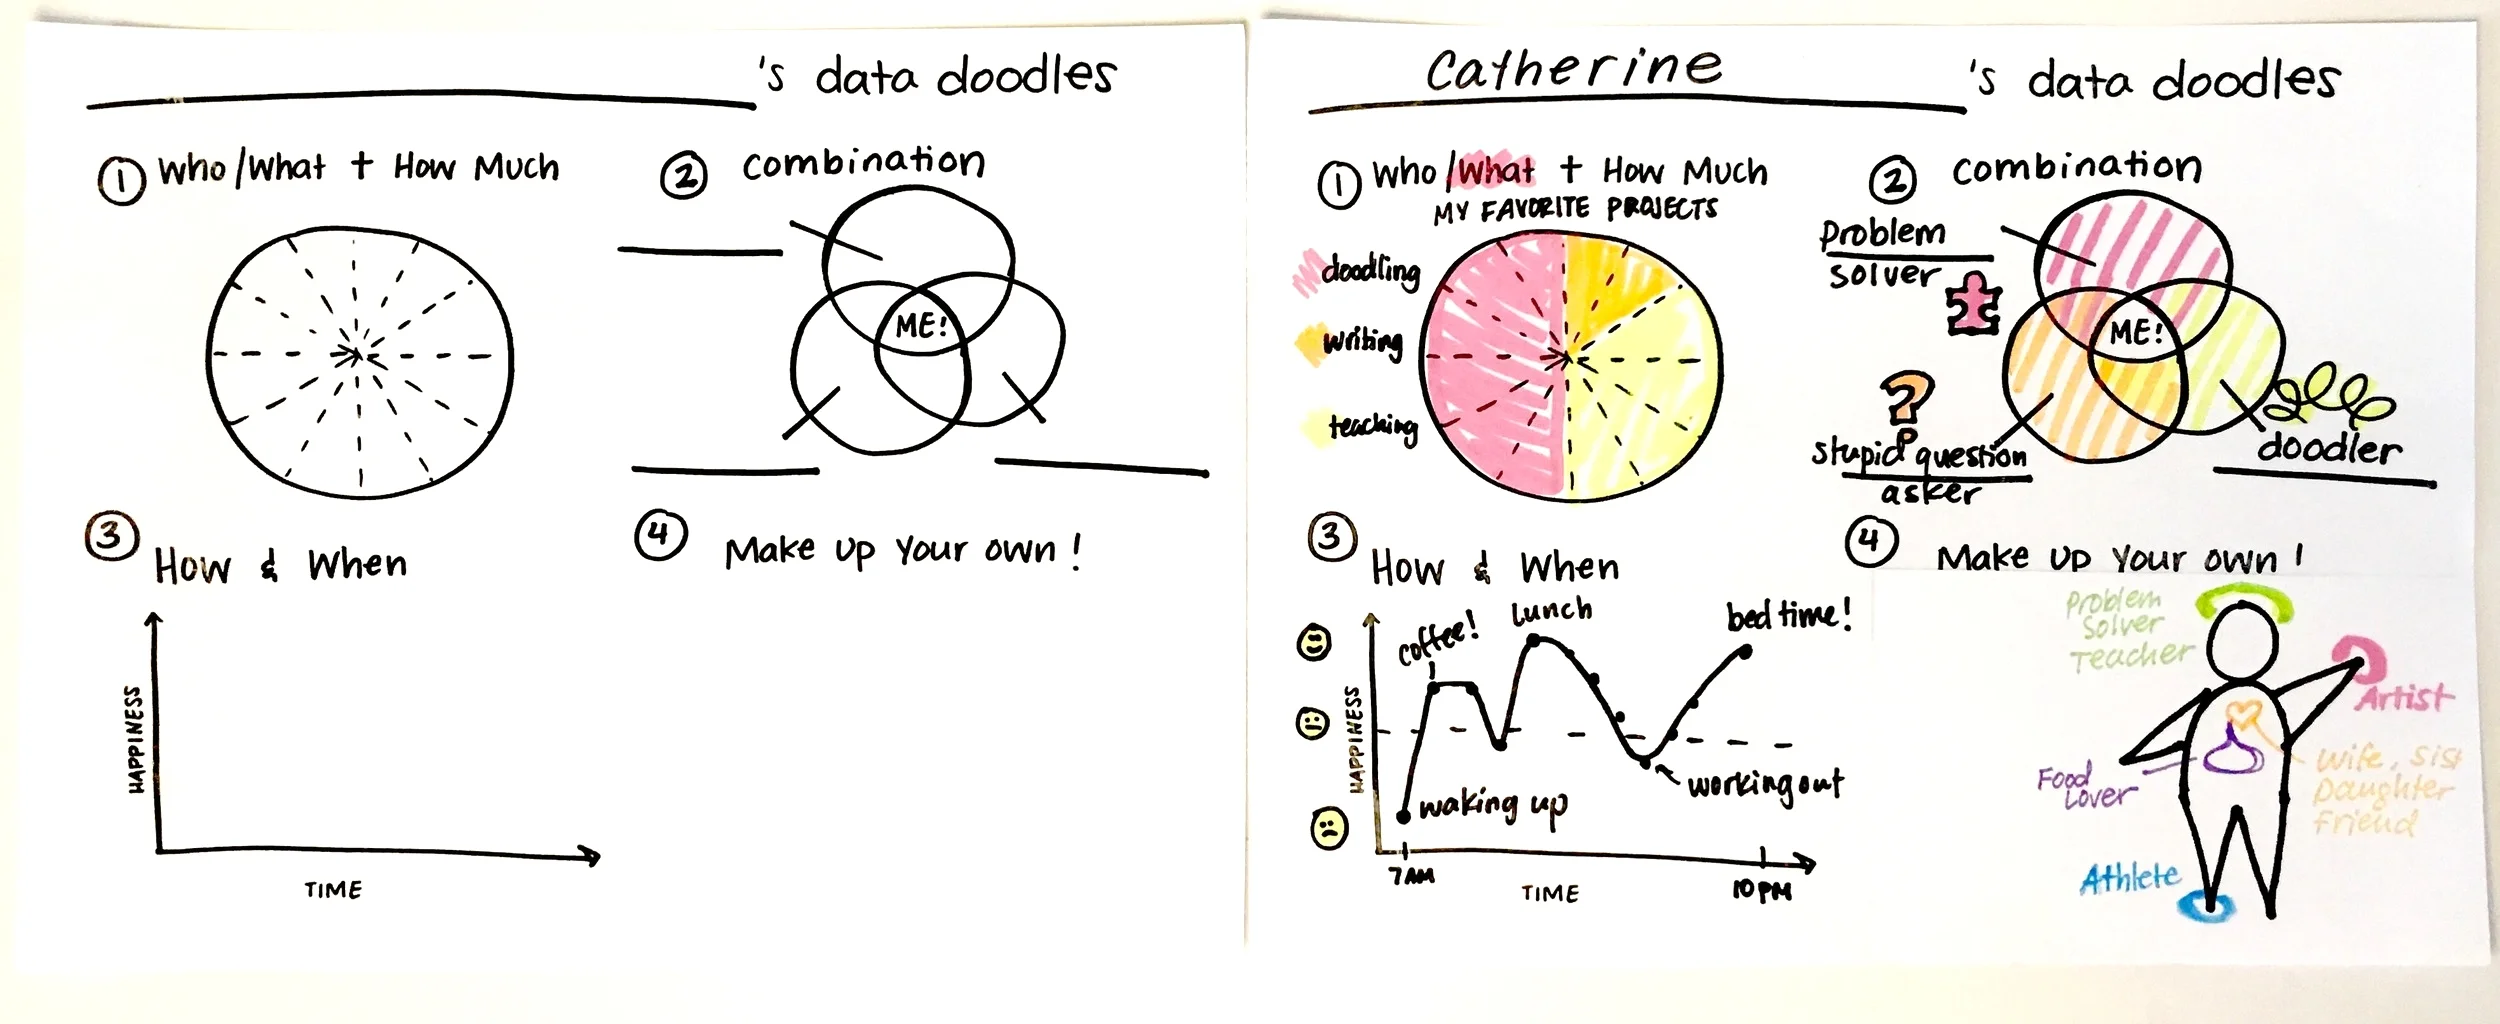 's data doodles
1 Who/What + How Much
2 combination
ME!
3 How & When
HAPPINESS
TIME
4 Make up your own!
Catherine's data doodles
1 Who/What + How Much
MY FAVORITE PROJECTS
doodling
writing
teaching
2 combination
Problem
solver
ME!
?
stupid question
asker
doodler
3 How & When
coffee!
lunch
bed time!
HAPPINESS
waking up
working out
7AM
TIME
10PM
4 Make up your own!
Problem
Solver
Teacher
Artist
Food
Lover
Wife, Sis
Daughter
Friend
Athlete